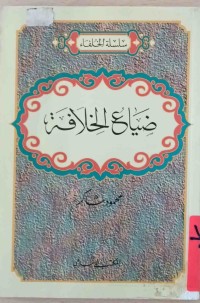 سلسلة الخلفاء
ضياع الخلافة
محمود شاكر
المكتب الإسلامي